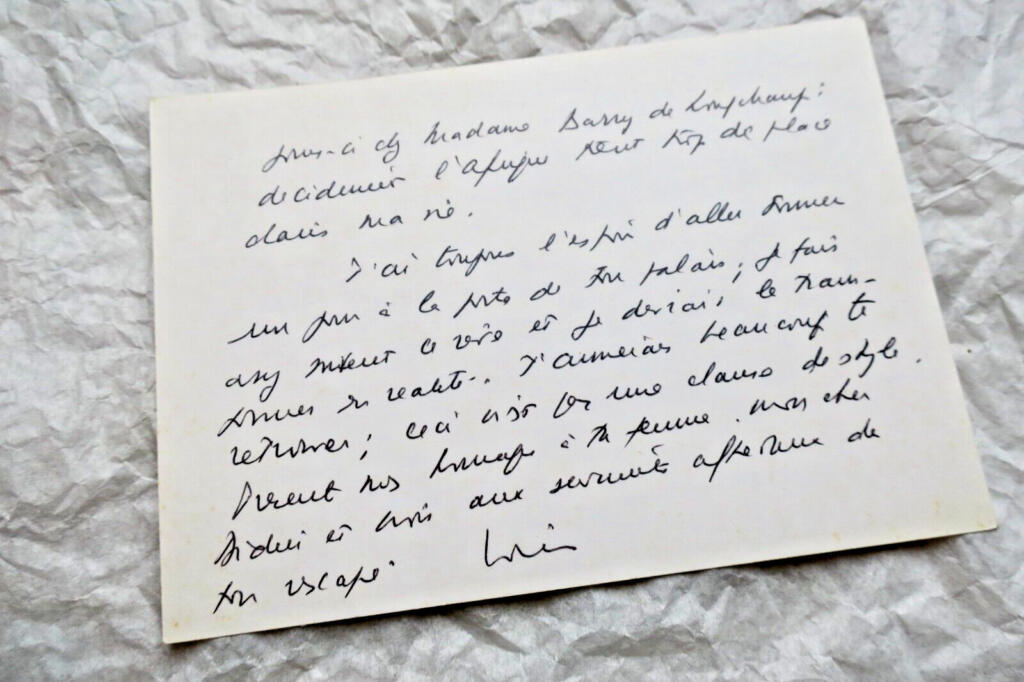 jours-ci chez Madame Barry de Longchamp:
decidement l'Afrique tient trop de place
dans ma vie.
J'ai toujours l'espoir d'aller sonner
un jour à la porte de ton palais; je fais
assez souvent ce rêve et je devrais le trans-
former en realité. J'aimerais beaucoup te
retrouver; ceci n'est pas une clause de style.
Present nos hommages à ta femme, mon cher
et crois aux sentiments affectueux de
ton rescapé.
Louis